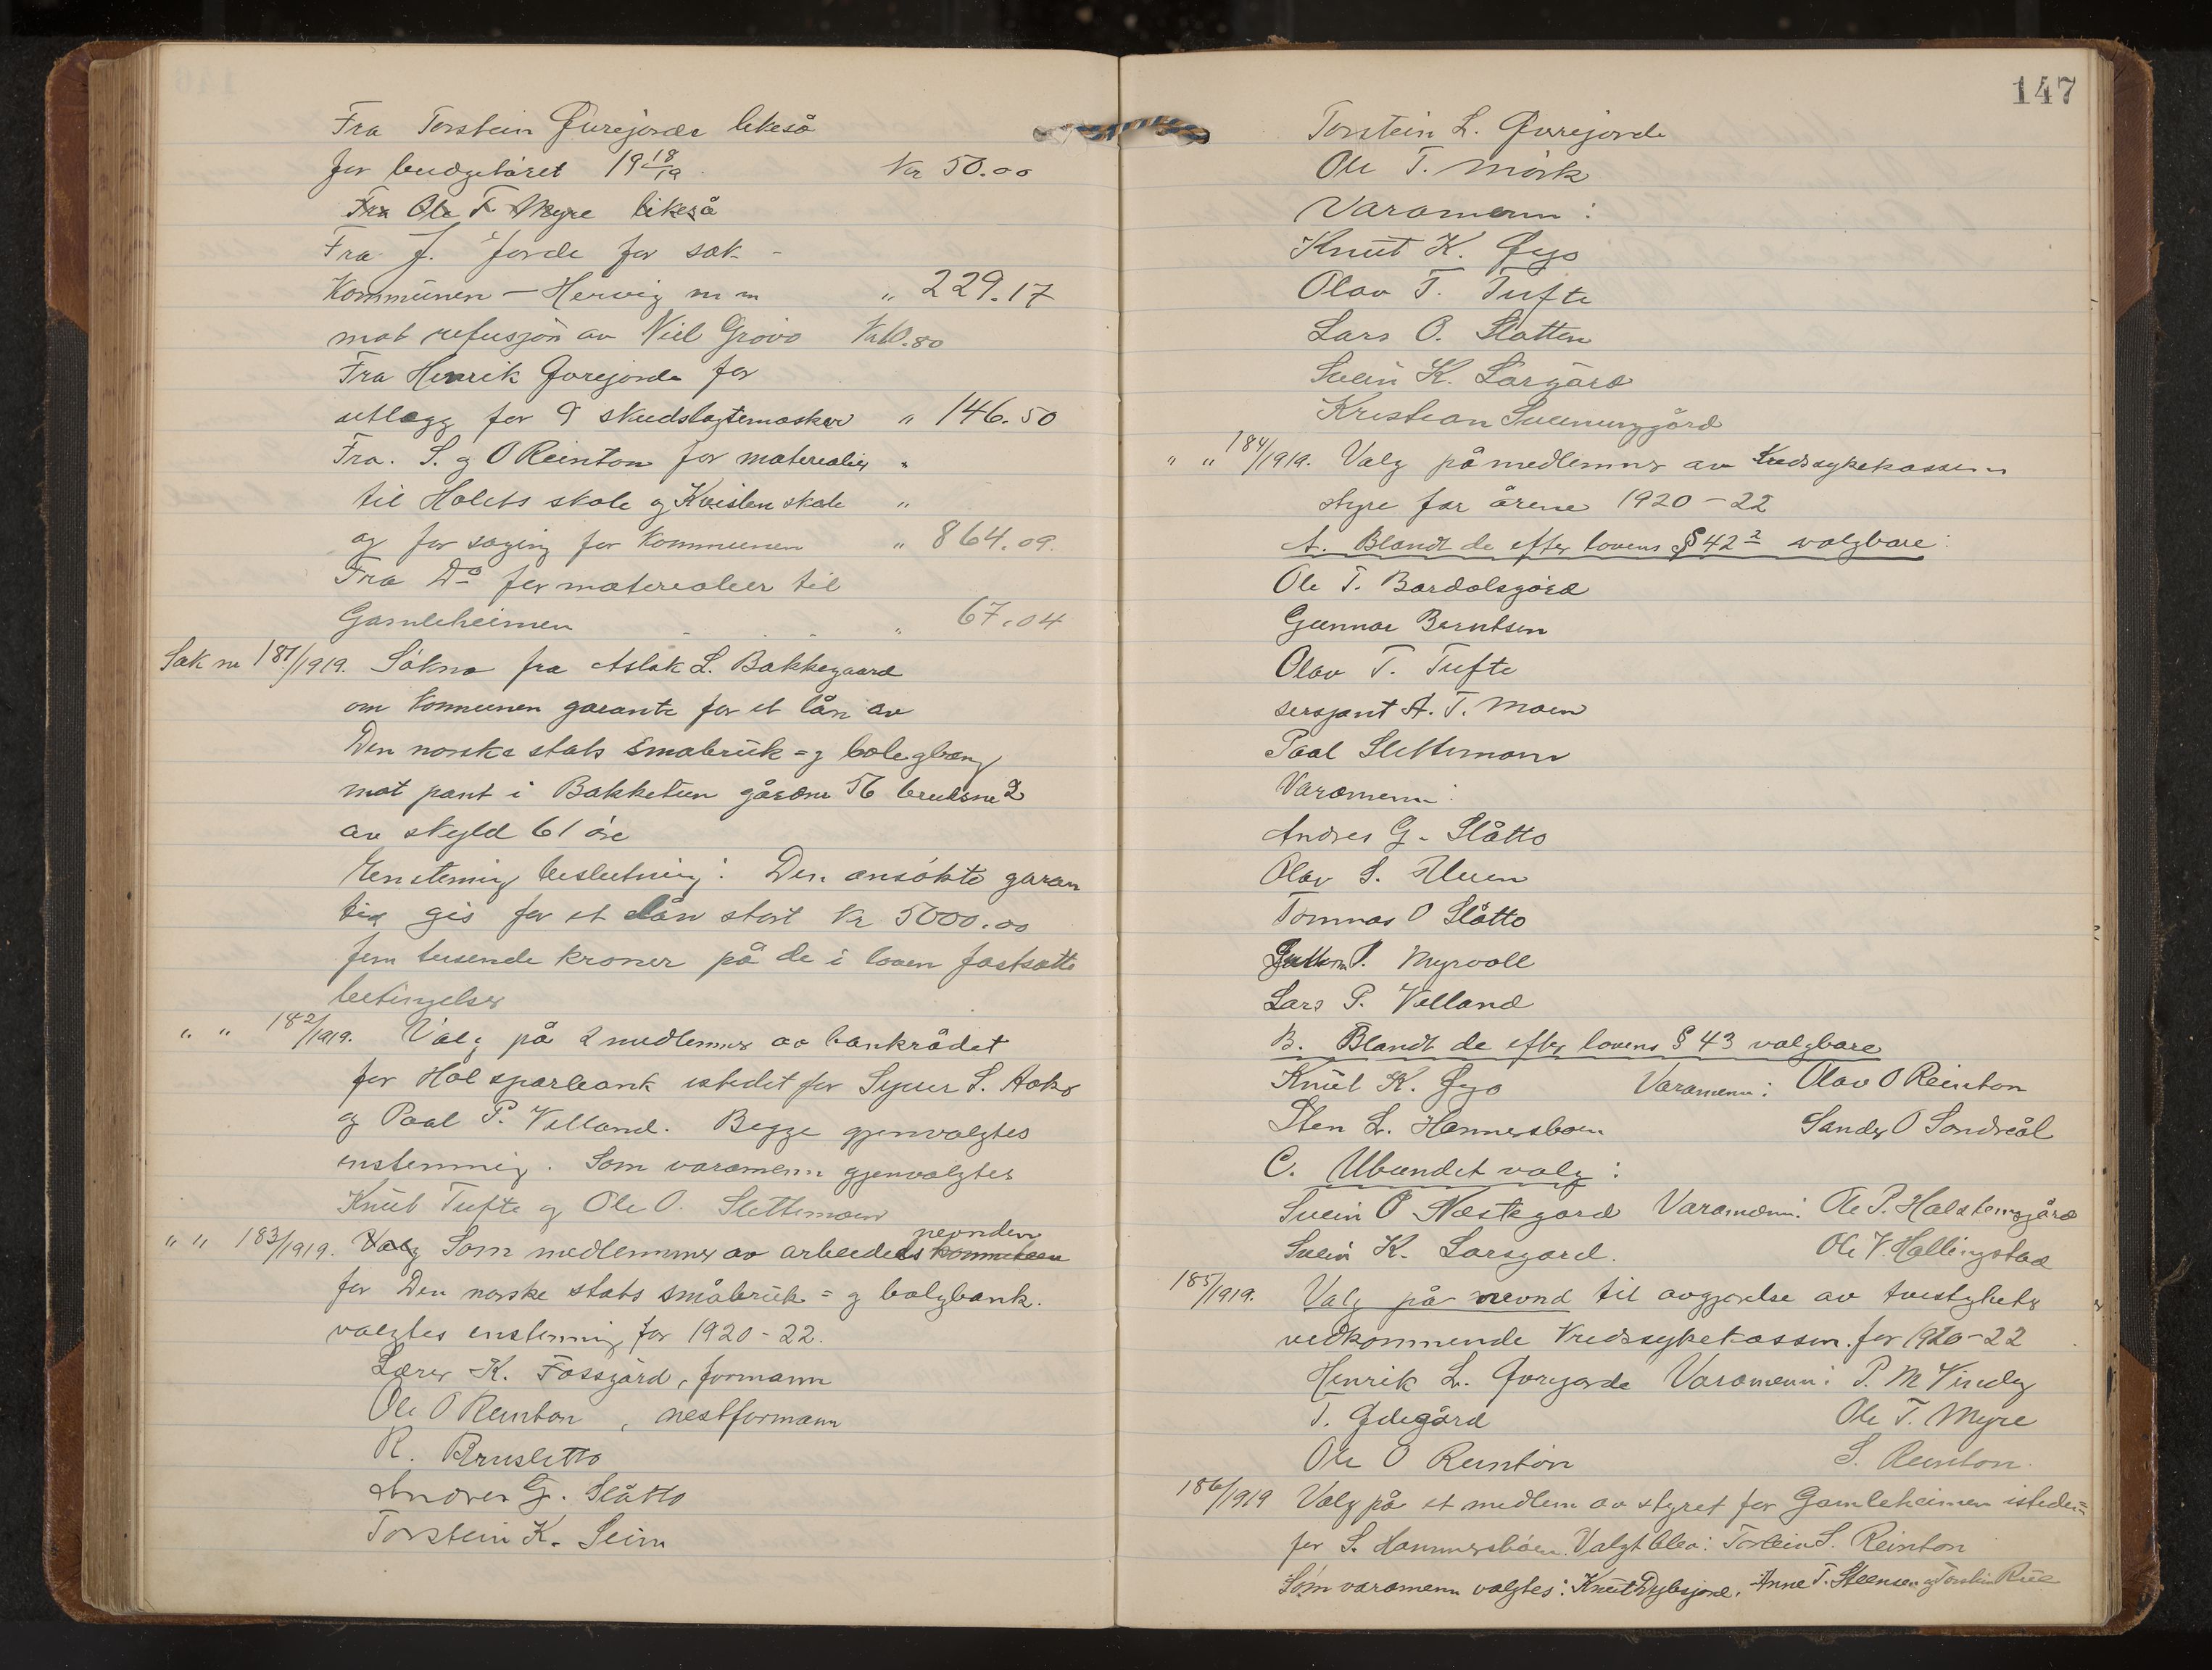 Fra Torstein Øvrejorde likeså
for budgetåret 19 18/19. Kr 50.00
Fra Ole T Myre likeså
Fra J. Jorde for sak -
Kommunen - Hervig m m " 229.17
mot refusjon av Niel Grøvo
Fra Henrik Øvrejorde for
utlægg for 9 skudslagtemasker " 146.50
Fra. S. og O Reinton for materealier "
til Holets skole og Kvislen skole "
og for saging for Kommunen " 864.09.
Fra Do for materealier til
Gamleheimen " 67.04
Sak nr 181/1919. Søkna fra Aslak L. Bakkegaard
om Kommunen garante for et lån av
Den norske stats småbruk- og boligbank
mot pant i Bakketun gårdnr 56 bruksnr 2
av skyld 61 øre
Enstemmig beslutning: Den ansøkte garan
tia gis for et lån stort Kr 5000.00
fem tusende kroner på de i loven fastsatte
betingelser
" " 182/1919. Valg på 2 medlemmer av bankrådet
for Hol sparbank istedet for Syver S. Aaker
og Paal P. Villand. Begge gjenvalgtes
enstemmig. Som varamenn gjenvalgtes
Knut Tufte og Ole O. Slettemoen
nevnden
" " 183/1919. Valg Som medlemmer av arbeiders komiteen
for Den norske stats småbruk= og boligbank.
valgtes enstemmig for 1920-22.
Lærer K. Fossgård, formann
Ole O Reinton, nestformann
R. Brusletto
Andres G. Slåtto
Torstein K. Seim
147
Torstein L. Øvrejorde
Ole T. Mørk
Varamenn:
Knut K. Øyo
Olav T. Tufte
Lars O. Slatten
Svein K. Largård
Kristian Sveinunggård
" " 184/1919. Valg på medlemmer av Kredssykekassens
styre for årene 1920-22
A. Blandt de efter lovens § 42 2 valgbare:
Ole T. Bardalsgård
Gunnar Berntsen
Olav T. Tufte
sersjant A. T. Moen
Paal Slettemoen
Varamenn:
Andres G. Slåtto
Olav S. Uleen
Tommas O Slåtto
Guttorm T. Myrvoll
Lars P. Villand
B. Blandt de efter lovens § 43 valgbare
Knut K. Øyo Varamenn: Olav O Reinton
Sten L. Hammersboen Sander O Sondreål
C. Ubundet valg:
Svein O Næstegard Varamenn: Ole P. Halstensgård
Svein K. Larsgard. Ole V. Hallingstad
185/1919. Valg på nevnd til avgjørelse av tvistigheter
vedkommende Kredssykekassen for 1920-22
Henrik L. Øvrejorde Varamenn: P. M Vindeg
T. Ødegård Ole T. Myre
Ole O Reinton S. Reinton.
186/1919 Valg på et medlem av styret for Gamleheimen isteden=
for S. Hammersbøen. Valgt blev: Torleiv S. Reinton
Som varamenn valgtes: Knut Dybsjord, Anne T. Steensen og Torstein Rue